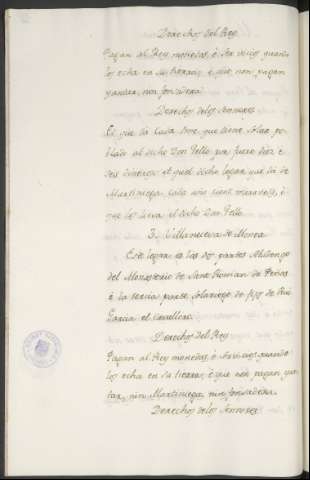 Derechos del Rey
Pagan al Rey monedas, é servicios quando
los echa en su tierra, é que non pagan
yantar, nin fonsadera
Derechos delos Sennores
Et que la Cada ome que tiene Solar po-
blado al dicho Don Tello por fuero diez é
dos dineros, et quel dicho logar que dá de
Martiniega cada año cient maravedis, é
que los lieva el dicho Don Tello
3. Villanueva de Monra
Este logar es las dos partes Abadengo
del Monasterio de Sant Roman de Peñas
é la tercia parte Solariego de fijos de Rui
Garcia el Cavallero.
Derechos del Rey
Pagan al Rey monedas, é Servicios quando
los echa en su tierra, é que non pagan yan-
tar, nin Martiniega nin fonsadera
Derechos delos Sennores